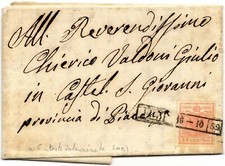 All. Reverendissimo
Chierico Valdoni Giulio
in Castel S. Giovanni
provincia di
18-10